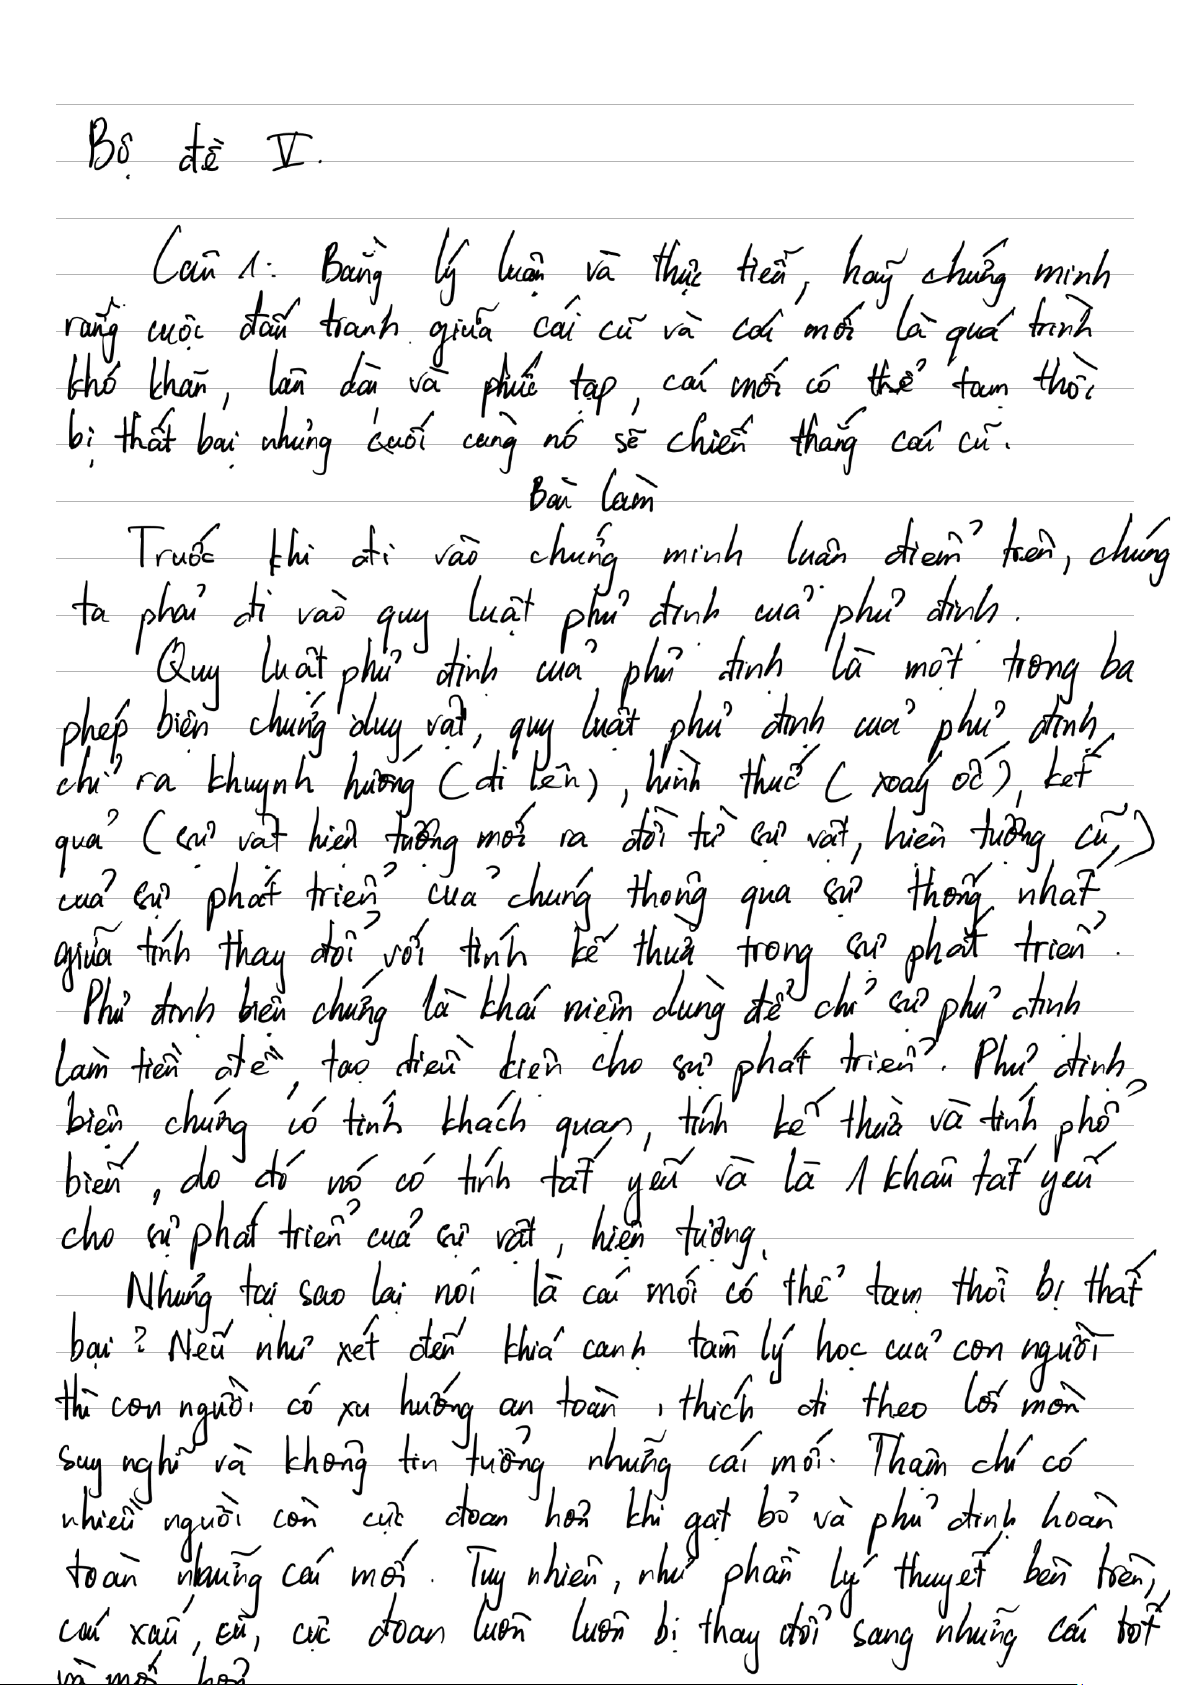 Bộ đề V.
Câu 1: Bằng lý luận và thực tiễn, hãy chứng minh
rằng cuộc đấu tranh giữa cái cũ và cái mới là quá trình
khó khăn, lâu dài và phức tạp, cái mới có thể tạm thời
bị thất bại nhưng cuối cùng nó sẽ chiến thắng cái cũ.
Bài làm
Trước khi đi vào chứng minh luận điểm trên, chúng
ta phải đi vào quy luật phủ định của phủ định.
Quy luật phủ định của phủ định là một trong ba
phép biện chứng duy vật, quy luật phủ định của phủ định
chỉ ra khuynh hướng (đi lên), hình thức (xoáy ốc), kết
quả (sự vật hiện tượng mới ra đời từ sự vật, hiện tượng cũ,)
của sự phát triển của chúng thông qua sự thống nhất
giữa tính thay đổi với tính kế thừa trong sự phát triển.
Phủ định biện chứng là khái niệm dùng để chỉ sự phủ định
làm tiền đề, tạo điều kiện cho sự phát triển. Phủ định
biện chứng có tính khách quan, tính kế thừa và tính phổ
biến, do đó nó có tính tất yếu và là 1 khâu tất yếu
cho sự phát triển của sự vật, hiện tượng.
Nhưng tại sao lại nói là cái mới có thể tạm thời bị thất
bại? Nếu như xét đến khía cạnh tâm lý học của con người
thì con người có xu hướng an toàn, thích đi theo lối mòn
suy nghĩ và không tin tưởng những cái mới. Thậm chí có
nhiều người còn cực đoan hơn khi gạt bỏ và phủ định hoàn
toàn những cái mới. Tuy nhiên, như phần lý thuyết bên trên,
cái xấu, cũ, cực đoan luôn luôn bị thay đổi sang những cái tốt
và mới hơn